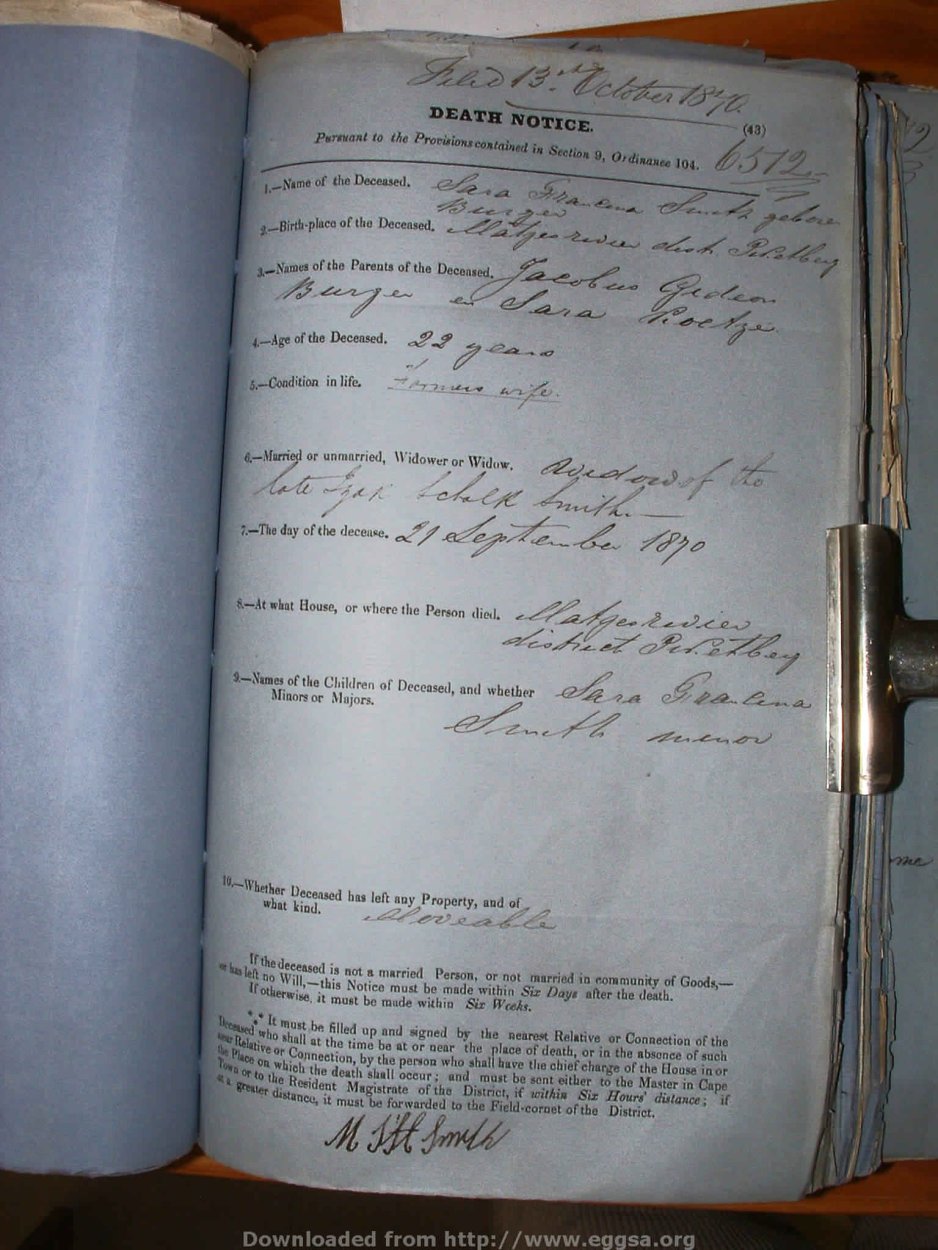 Filed 13th October 1870.
DEATH NOTICE.
(43)
Pursuant to the Provisions contained in Section 9, Ordinance 104.
6512
1.—Name of the Deceased. Sara Francina Smith geboren
Burger
2.—Birth-place of the Deceased. Matjesrivier distr. Piketberg
3.—Names of the Parents of the Deceased. Jacobus Gideon
Burger en Sara Koetze
4.—Age of the Deceased. 22 years
5.—Condition in life. Farmers wife.
6.—Married or unmarried, Widower or Widow. Widow of the
late Izak Schalk Smith—
7.—The day of the decease. 21 September 1870
8.—At what House, or where the Person died. Matjesrivier
district Piketberg
9.—Names of the Children of Deceased, and whether Sara Francina
Minors or Majors.
Smith minor
10.—Whether Deceased has left any Property, and of
what kind. Moveable
If the deceased is not a married Person, or not married in community of Goods,—
or has left no Will,—this Notice must be made within Six Days after the death.
If otherwise, it must be made within Six Weeks.
*** It must be filled up and signed by the nearest Relative or Connection of the
Deceased who shall at the time be at or near the place of death, or in the absence of such
near Relative or Connection, by the person who shall have the chief charge of the House in or
the Place on which the death shall occur; and must be sent either to the Master in Cape
Town or to the Resident Magistrate of the District, if within Six Hours' distance; if
at a greater distance, it must be forwarded to the Field-cornet of the District.
Smith
me
Downloaded from http://www.eggsa.org